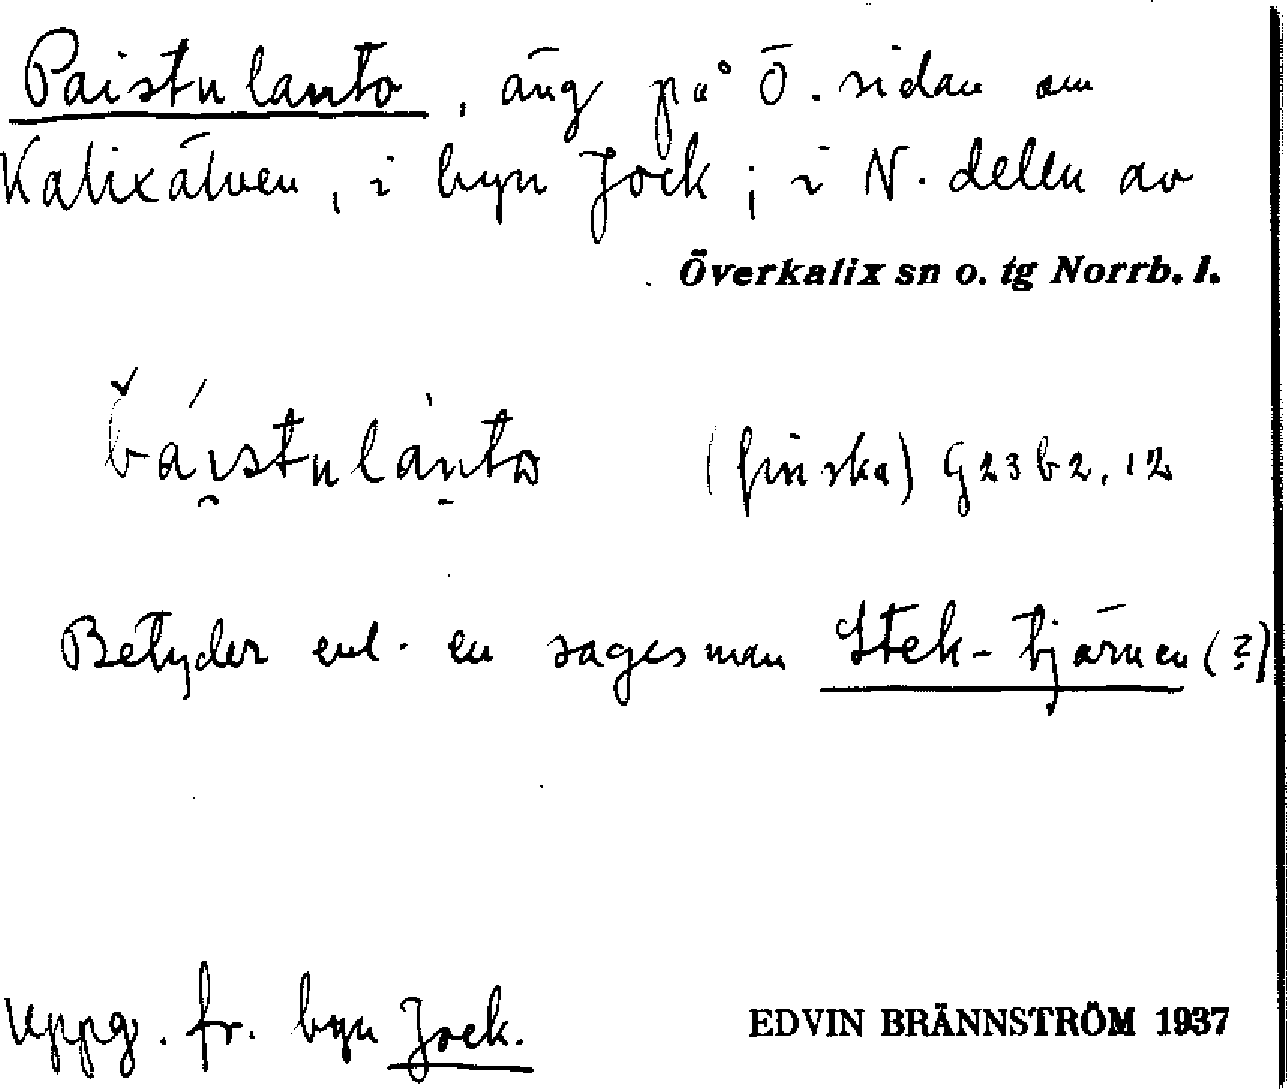 Paistulanto, äng på Ö. sidan om
Kalixälven, i byn Jock; i N. delen av
Överkalix sn o. tg Norrb. l.
(finska) G23b2.12
Betyder enl. en sagesman Stek-tjärnen (?)
Uppg. fr. byn Jock.
EDVIN BRÄNNSTRÖM 1937